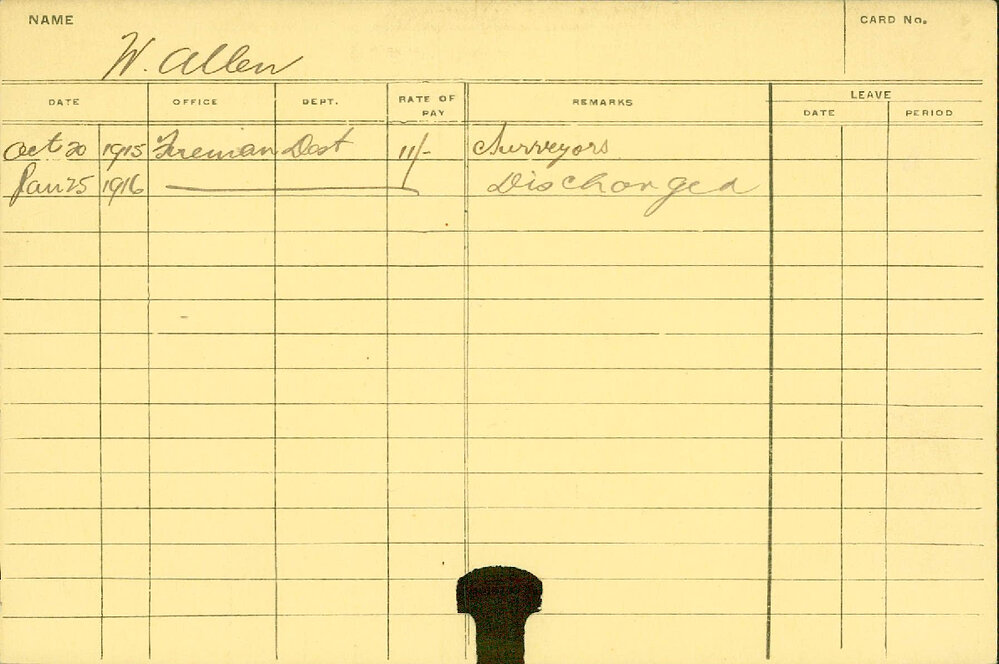 NAME
CARD No.
W. Allen
DATE OFFICE DEPT. RATE OF PAY REMARKS LEAVE
DATE PERIOD
Oct 20 1915 Fireman Dest 11/- Surveyors
Jan 25 1916 Discharged